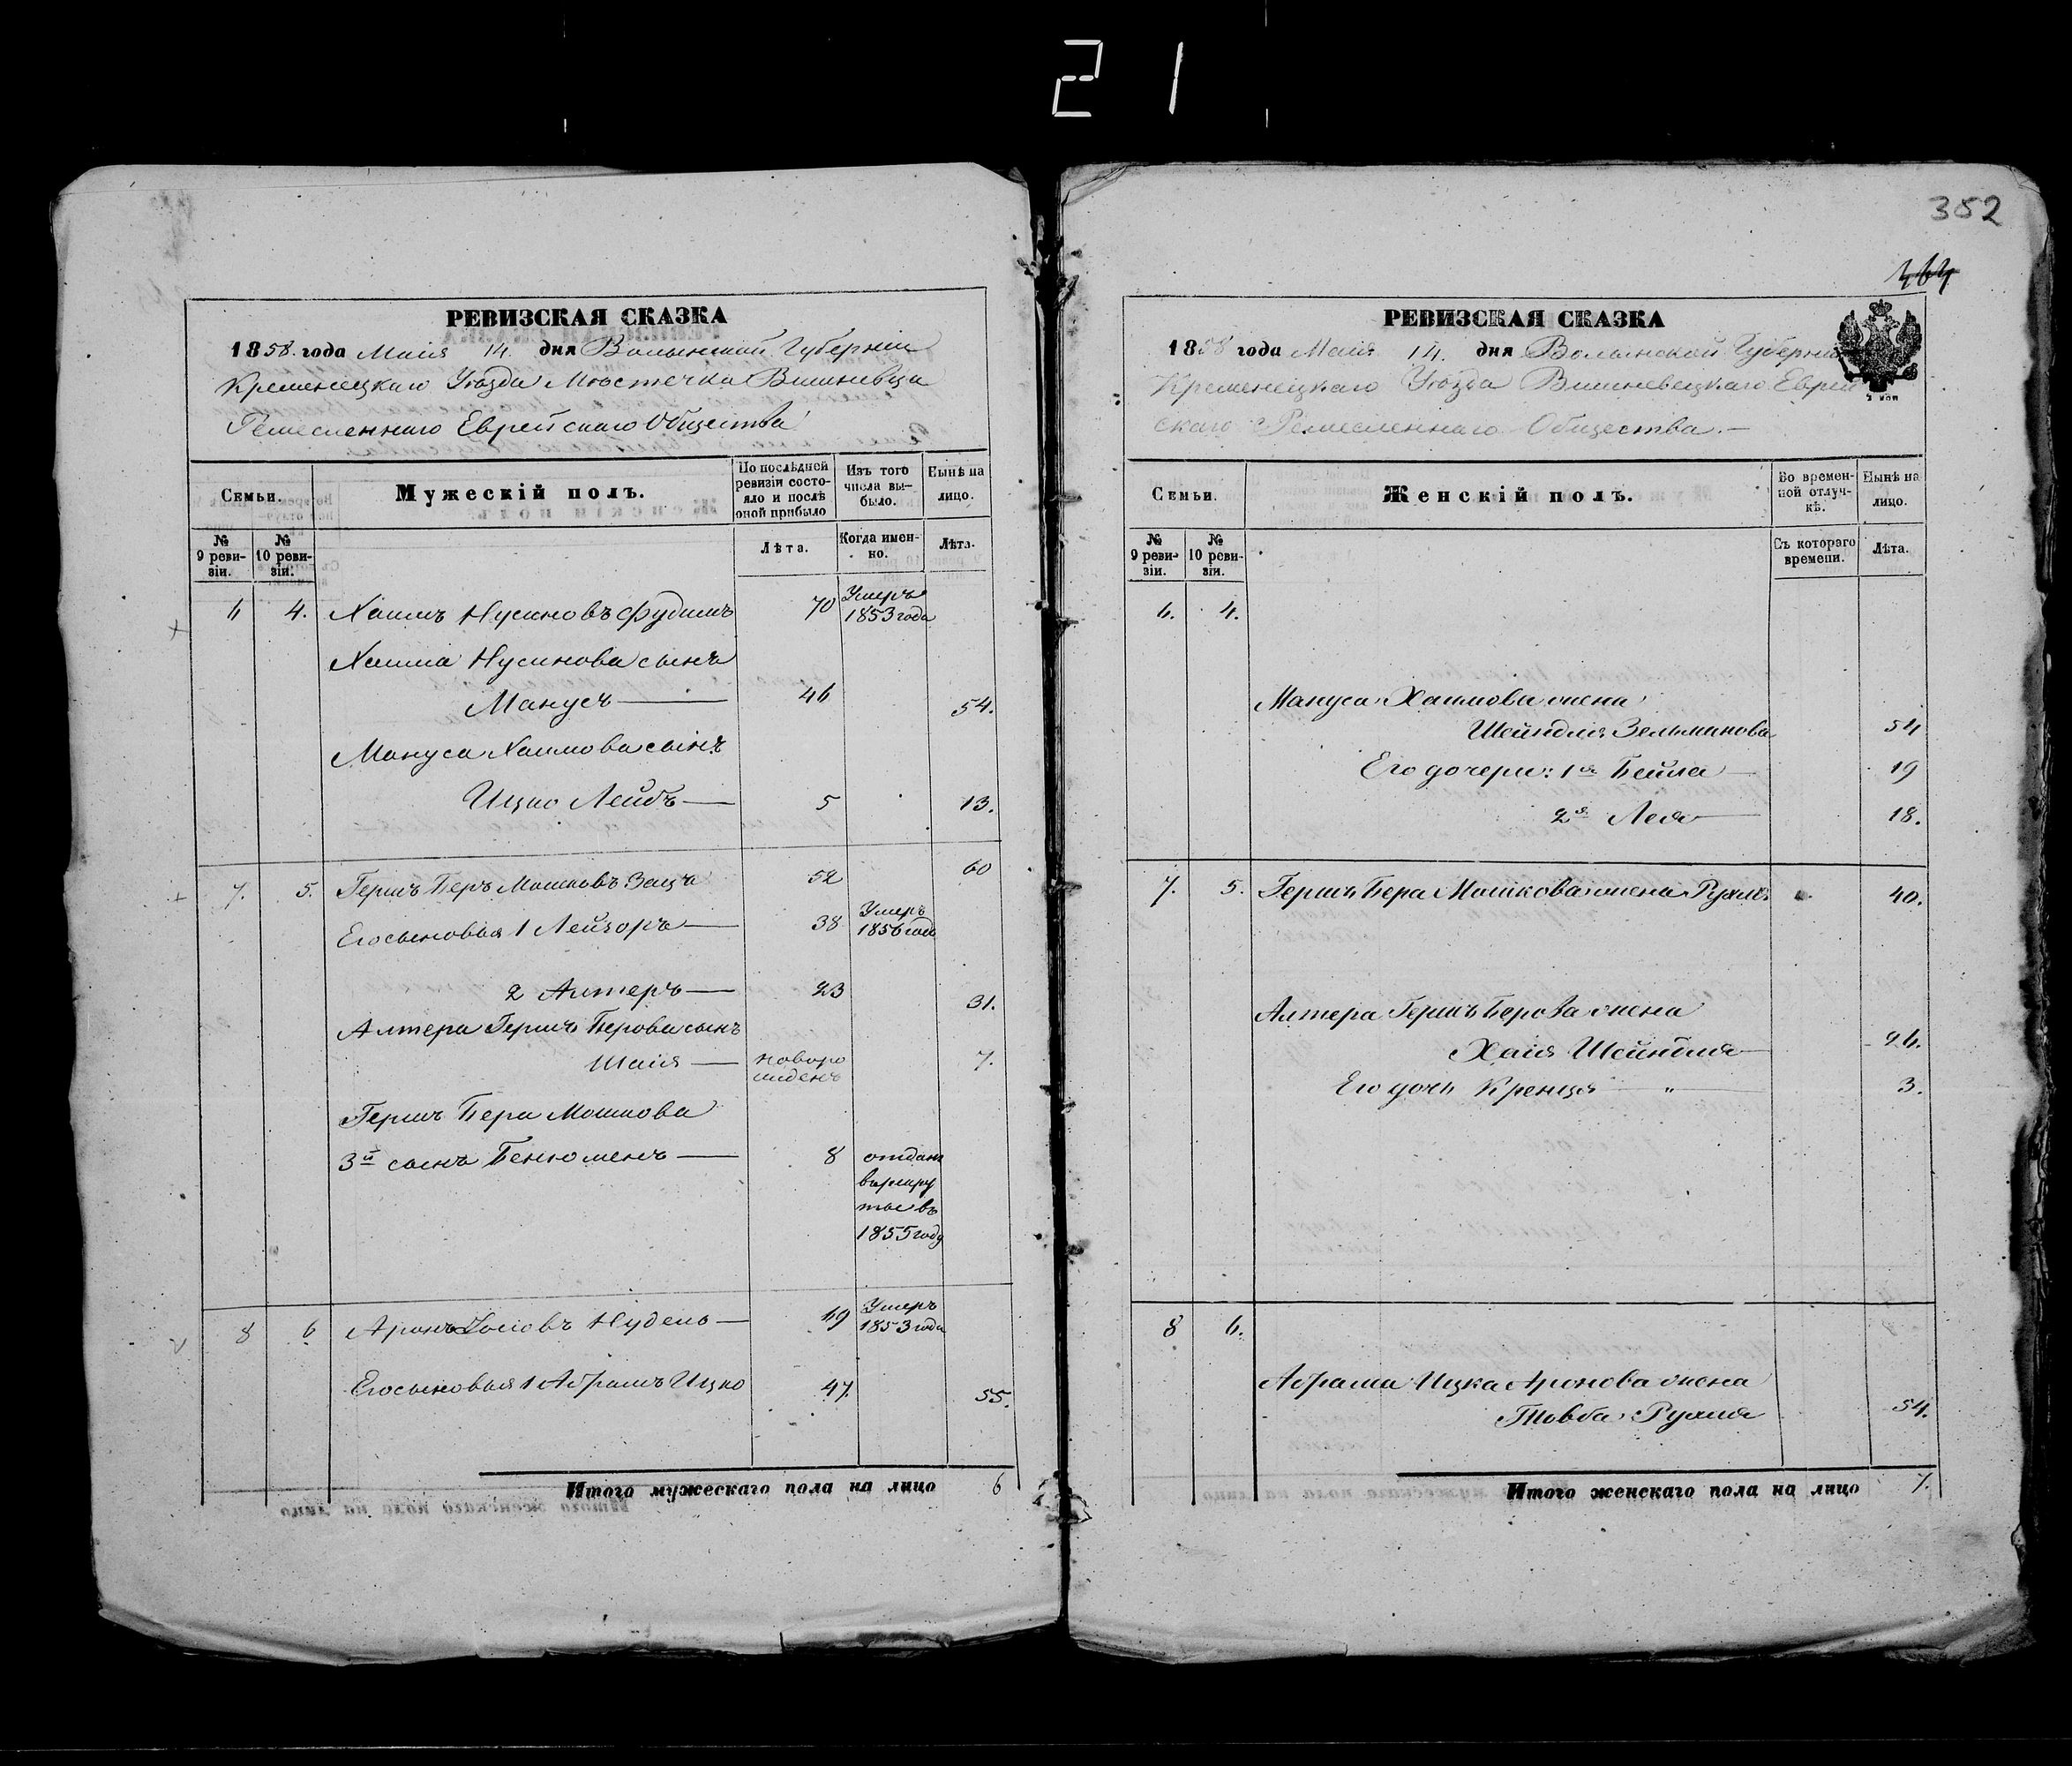 21
РЕВИЗСКАЯ СКАЗКА
1858. года Маія 14. дня Волынской Губерніи
Кременецкаго Уѣзда Мѣстечка Вишневца
Ремесленнаго Еврейскаго Общества
Семьи.
Мужескій полъ.
По послѣдней ревизіи состояло и послѣ оной прибыло
Изъ того числа выбыло.
Нынѣ на лицо.
№ 9 ревизіи.
№ 10 ревизіи.
Лѣта.
Когда именно.
Лѣта.
6 4. Хаимъ Нусиновъ Фудимъ 70 Умеръ 1853 года
Хаима Нусинова сынъ
Манусъ 46 54.
Мануса Хаимова сынъ
Ицко Лейбъ 5 13.
7. 5. Гершъ Беръ Мошковъ Зацъ 52 60
Его сыновья 1 Лейзоръ 38 Умеръ 1856 года
2 Алтеръ 23 31.
Алтера Гершъ Берова сынъ
Шаія новорожденъ 7.
Гершъ Бера Мошкова
3й сынъ Бенюменъ 8 отданъ в рекруты въ 1855 году
8 6 Аронъ Іосіовъ Нудель 69 Умеръ 1853 года
Его сыновья 1 Абрамъ Ицко 47. 55.
Итого мужескаго пола на лицо 6
352
РЕВИЗСКАЯ СКАЗКА
1858 года Маія 14. дня Волынской Губерніи
Кременецкаго Уѣзда Вишневецкаго Еврей
скаго Ремесленнаго Общества.
Семьи.
Женскій полъ.
Во временной отлучкѣ.
Нынѣ на лицо.
№ 9 ревизіи.
№ 10 ревизіи.
Съ котораго времени.
Лѣта.
6. 4.
Мануса Хаимова жена
Шейндля Зельманова 54
Его дочери: 1я Бейла 19
2я Лея 18.
7. 5. Гершъ Бера Мошкова жена Рухля 40.
Алтера Гершъ Берова жена
Хаія Шейндля 26.
Его дочь Кренця " 3.
8 6.
Абрама Ицка Аронова жена
Товба Рухля 54.
Итого женскаго пола на лицо 7.